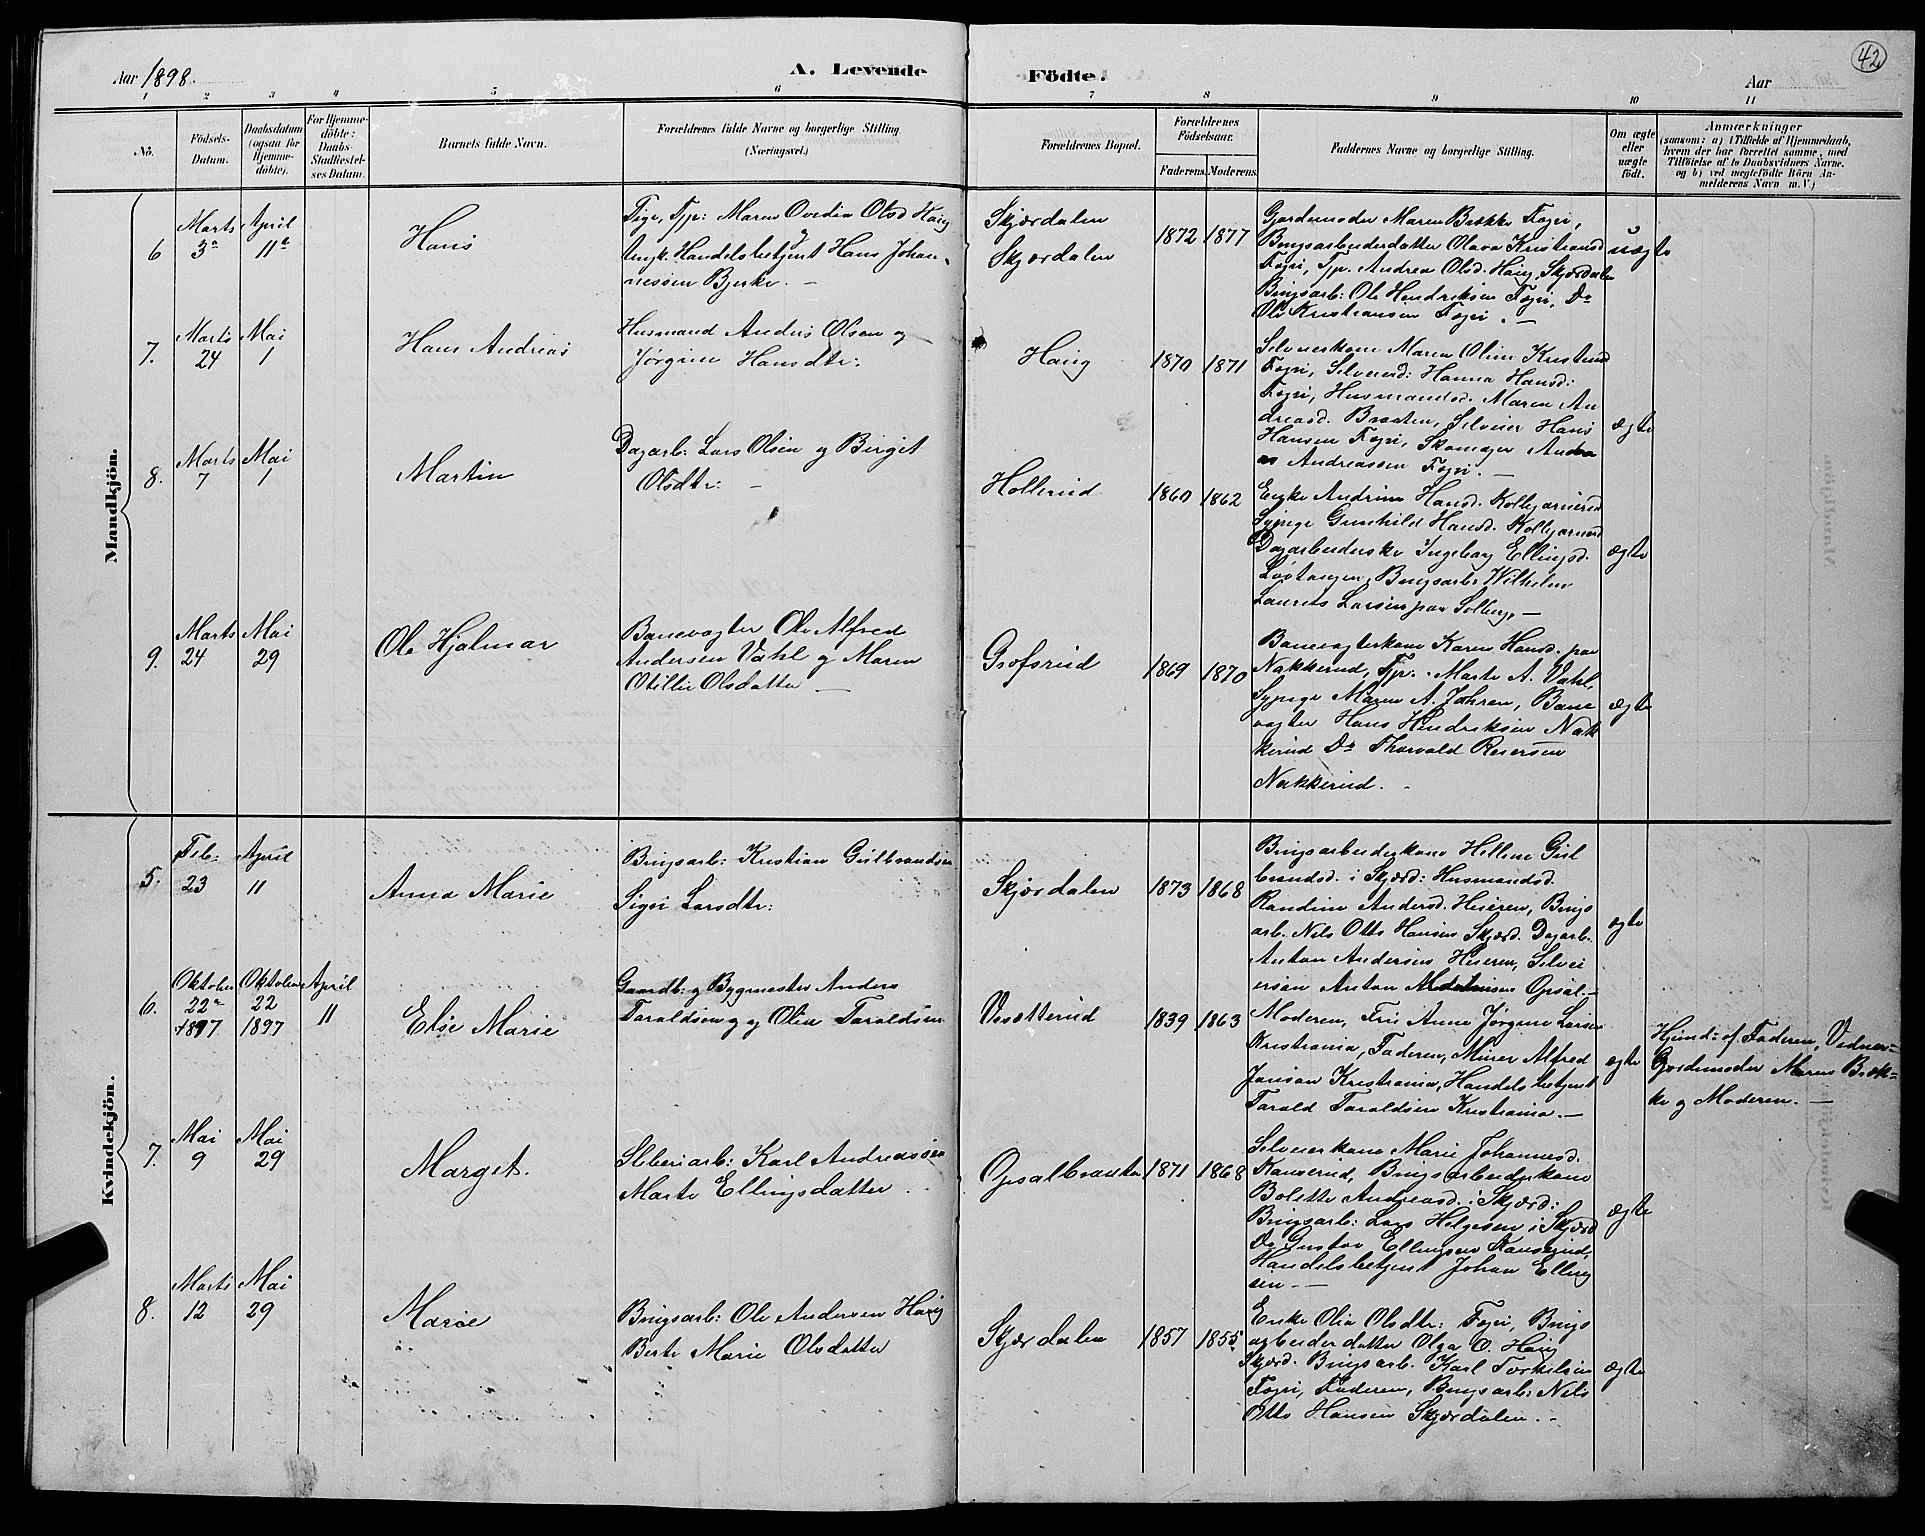 Aar 1898.
A. Levende Födte.
Aar
42
1 2 3 4 5 6 7 8 9 10 11
No.
Födsels-Datum.
Daabsdatum (ogsaa for Hjemme-döbte).
For Hjemme-döbte: Daabs-Stadfæstel-ses Datum.
Barnets fulde Navn.
Forældrenes fulde Navne og borgerlige Stilling (Næringsvei.)
Forældrenes Bopæl.
Forældrenes Födselsaar.
Faderens. Moderens.
Faddernes Navne og borgerlige Stilling.
Om ægte eller uægte födt.
Anmærkninger
(saasom: a) i Tilfælde af Hjemmedaab,
hvem der har forrettet samme, med
Tilföielse af to Daabsvidners Navne.
og b) ved uægtefödte Börn An-
melderens Navn m. V.)
Mandkjön.
6
Marts 3
April 11
Hans
Pige, Tjp: Maren Ovedia Olsd Haug
Ungk. Handelsbetjent Hans Johan-
nessen Bjerke. —
Skjærdalen
Skjærdalen
1872 1877
Gjordemoder Maren Bække Fegri,
Brugsarbeiderdatter Olava Kristiansd
Fegri, Tjp. Andrea Olsd. Haug, Skjærdalen
Brugsarb: Ole Hendriksen Fegri, Do
Ole Kristiansen Fegri. —
uægte
7.
Marts 24
Mai 1
Hans Andreas
Husmand Anders Olsen og
Jørgine Hansdtr:
Haug
1870 1871
Selveierkone Maren Oline Kristiansd
Fegri, Selveierd: Hanna Hansd:
Fegri, Husmandsd. Maren An
dreasd. Braaten, Selveier Hans
Hansen Fegri, Skomager Andre
as Andreassen Fegri. —
ægte
8.
Marts 7
Mai 1
Martin
Dagarb: Lars Olsen og Birgit
Olsdtr: —
Hollerud
1860 1862
Enke Andrine Hansd. Kolbjørnsrud
Sypige Gunhild Hansd. Kolbjørnsrud
Dagarbeiderske Ingeborg Ellingsd.
Løvtangen, Brugsarb. Wilhelm
Laurits Larsen paa Solberg, —
ægte
9.
Marts 24
Mai 29
Ole Hjalmar
Banevogter Ole Alfred
Andersen Vahl og Maren
Otillie Olsdatter —
Grøfsrud
1869 1870
Banevogterkone Karen Hansd. paa
Nakkerud, Tjp. Marte A. Vahl,
Sypige Maren A. Johren, Bane
vogter Hans Hendriksen Nak
kerud Do Thorvald Reiersen
Nakkerud. -
ægte
Kvindekjön.
5.
Feb: 23
April 11
Anna Marie
Brugsarb: Kristian Gulbrandsen
Sigri Larsdtr:
Skjærdalen
1873 1868
Brugsarbeiderkone Hellene Gul
brandsd. i Skjærd: Husmandsd.
Randine Andersd. Heieren, Brugs
arb. Nils Otto Hansen Skjærd. Dagarb.
Anton Andersen Heieren, Selvei
ersøn Anton Opsal —
ægte
6.
Oktober 22 1897
Oktober 22 1897
April 11
Else Marie
Gaardb: og Bygmester Anders
Taraldsen og Olia Taraldsen
Vesætterud
1839 1863
Moderen, Frk Anna Jørgine Larsen
Kristiania, Faderen, Murer Alfred
Janson Kristiania, Handelsbetjent
Tarald Taraldsen Kristiania. —
ægte
Hjemd: af Faderen, Vidner =
Gjordemoder Maren Bæk=
ke og Moderen. —
7.
Mai 9
Mai 29
Marget.
Sliberiarb: Karl Andreassen
Marte Ellingsdatter.
Opsalbraaten
1871 1868
Selveierkone Marie Johannesd.
Fanserud, Brugsarbeiderkone
Bolette Andreasd. i Skjærd:
Brugsarb: Lars Helgesen i Skjærd
Do Gustav Ellingsen Fanserud,
Handelsbetjent Johan Elling
sen. —
ægte
8.
Marts 12
Mai 29
Marie
Brugsarb: Ole Andersen Haug
Berte Marie Olsdatter
Skjærdalen
1857 1855
Enke Olia Olsdtr: Fegri, Brugs
arbeiderdatter Olga O. Haug
Skjærd. Brugsarb. Karl Torkelsen
Fegri, Faderen, Brugsarb: Nils
Otto Hansen Skjærdalen. -
ægte